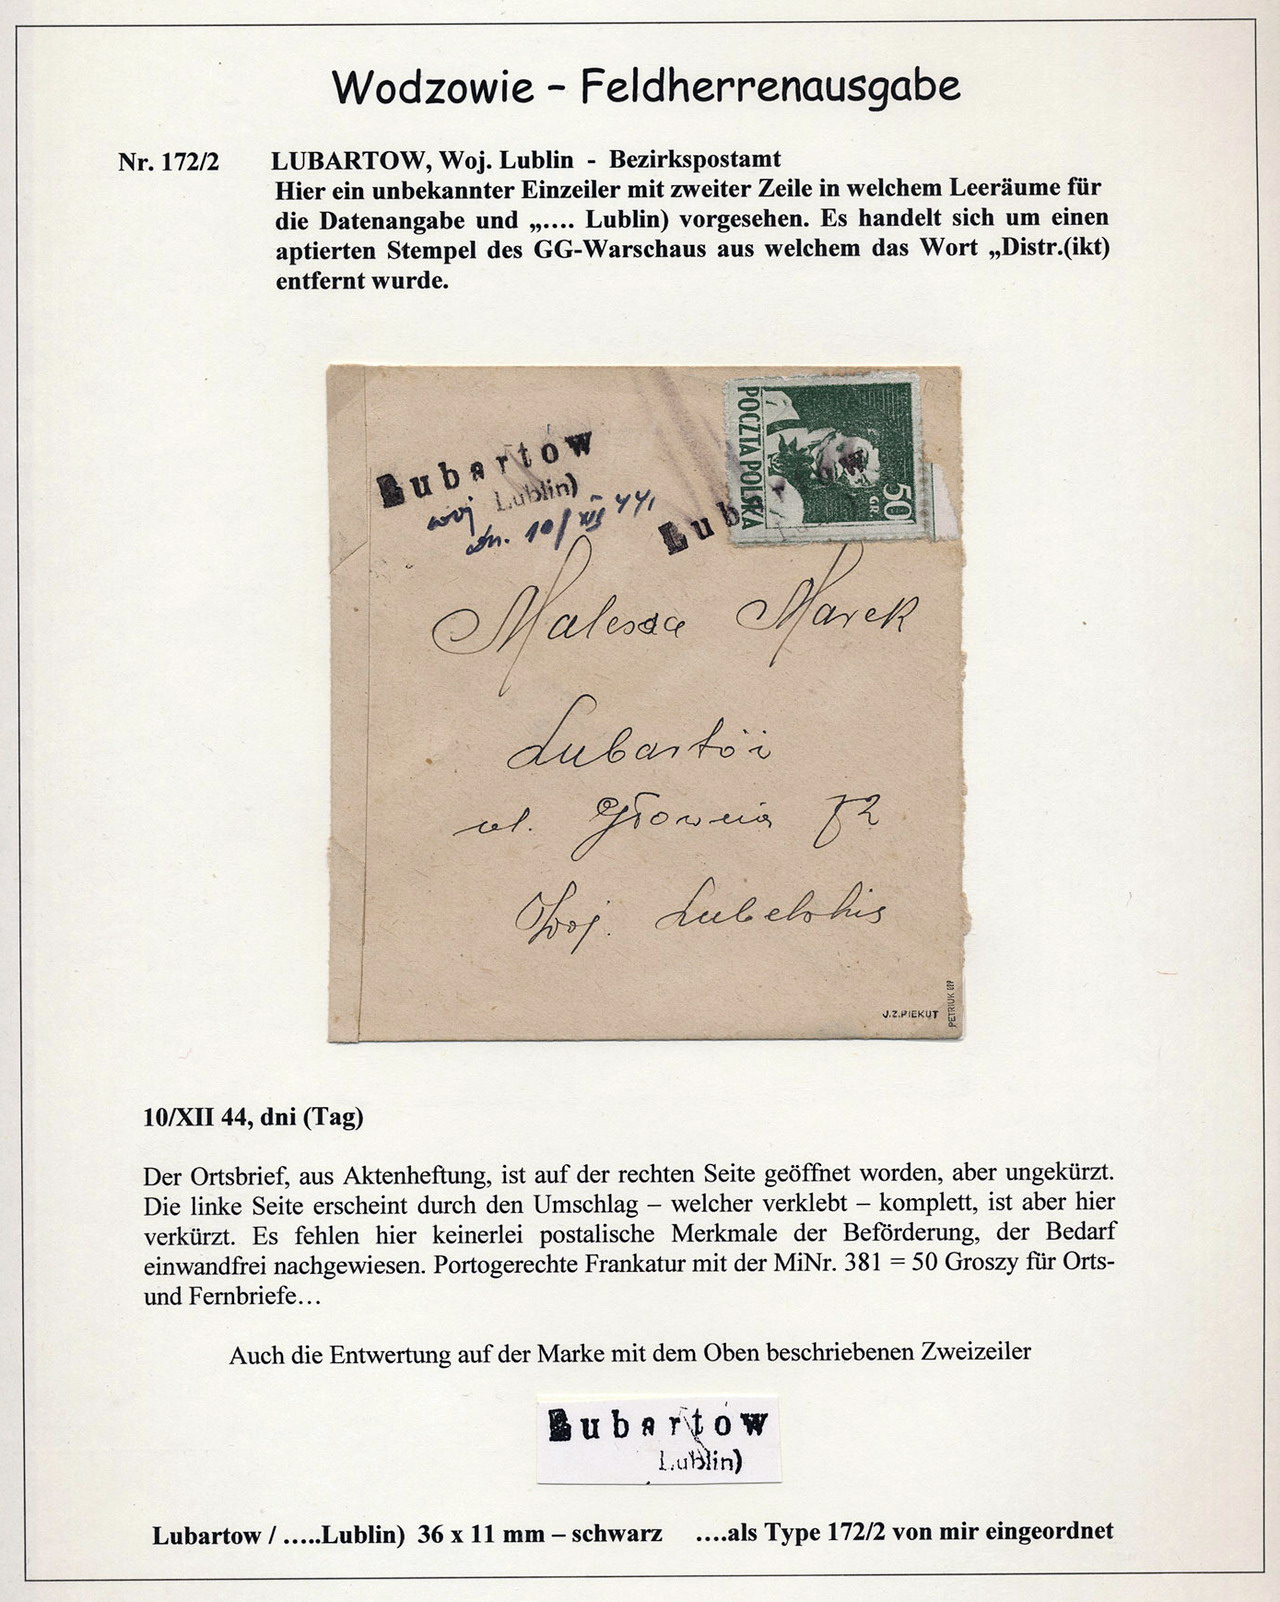 Wodzowie – Feldherrenausgabe
Nr. 172/2 LUBARTOW, Woj. Lublin - Bezirkspostamt
Hier ein unbekannter Einzeiler mit zweiter Zeile in welchem Leeräume für
die Datenangabe und „…. Lublin) vorgesehen. Es handelt sich um einen
aptierten Stempel des GG-Warschaus aus welchem das Wort „Distr.(ikt)
entfernt wurde.
POCZTA POLSKA
50 GR.
Lubartow
woj Lublin)
dn. 10/XII 44,
Lub
Malessa Marek
Lubartów
ul. 72
Woj. Lubelskie
J.Z.PIEKUT
PETRIUK BPP
10/XII 44, dni (Tag)
Der Ortsbrief, aus Aktenheftung, ist auf der rechten Seite geöffnet worden, aber ungekürzt.
Die linke Seite erscheint durch den Umschlag – welcher verklebt – komplett, ist aber hier
verkürzt. Es fehlen hier keinerlei postalische Merkmale der Beförderung, der Bedarf
einwandfrei nachgewiesen. Portogerechte Frankatur mit der MiNr. 381 = 50 Groszy für Orts-
und Fernbriefe…
Auch die Entwertung auf der Marke mit dem Oben beschriebenen Zweizeiler
Lubartow
Lublin)
Lubartow / …..Lublin) 36 x 11 mm – schwarz ….als Type 172/2 von mir eingeordnet